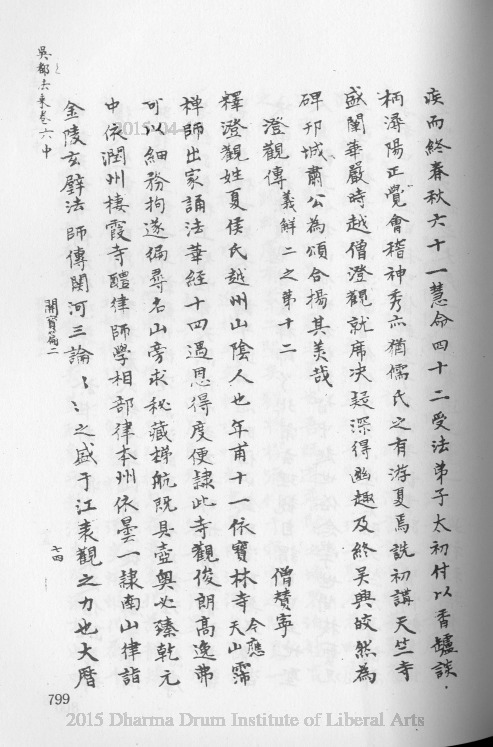 疾而終春秋六十一慧命四十二受法弟子太初付以香罏談
柄潯陽正覺會稽神秀亦猶儒氏之有游夏焉詵初講天竺寺
盛闡華嚴時越僧澄觀就席决疑深得幽趣及終吳興皎然為
碑邗城蕭公為頌合揚其美哉
澄觀傳 義解二之第十二 僧贊寧
釋澄觀姓夏侯氏越州山陰人也年甫十一依寶林寺今應天山霈
禅師出家誦法華經十四遇恩得度便隷此寺觀俊朗高逸弗
可以細務拘遂徧尋名山旁求秘藏梯航既具壼奥必臻乾元
中依潤州棲霞寺醴律師學相部律本州依曇一隷南山律詣
金陵玄璧法師傳関河三論〻〻之盛于江表觀之力也大曆
吳都法乘卷六中
開寶篇二
七四
799
2015-04-
2015 Dharma Drum Institute of Liberal Arts